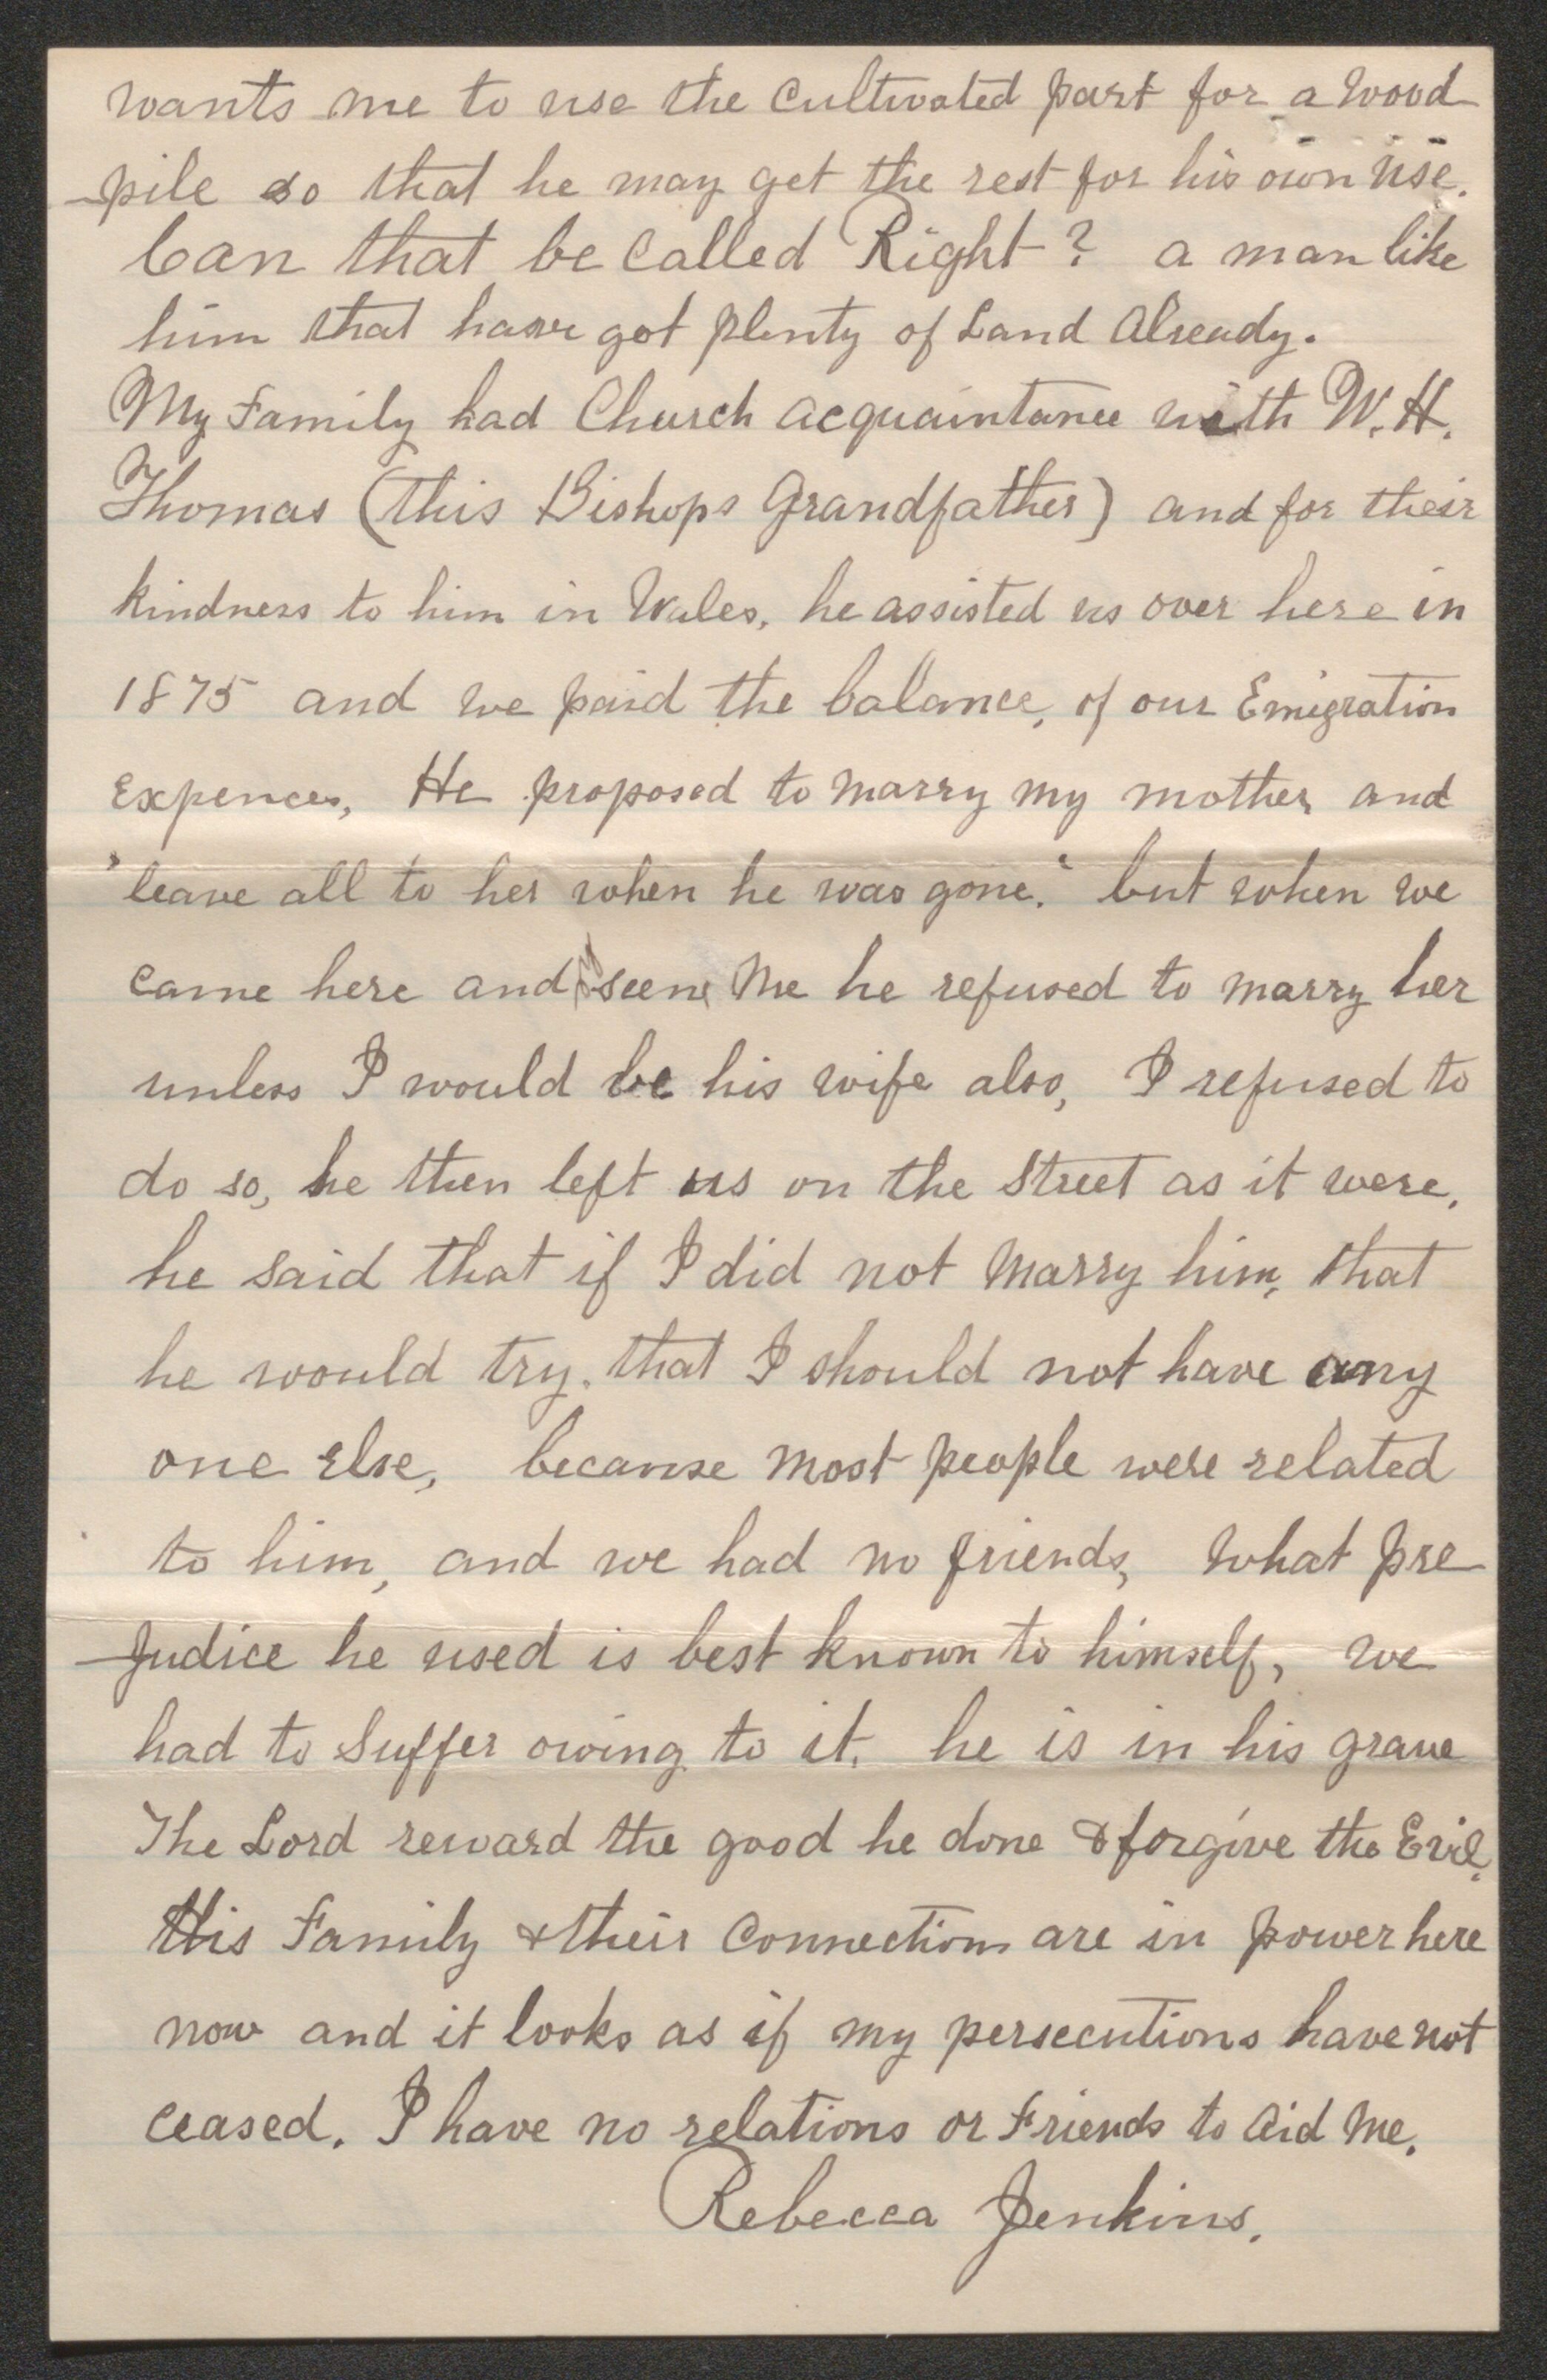 wants me to use the Cultivated part for a wood
-pile so that he may get the rest for his own use.
Can that be Called Right? a man like
him that have got plenty of Land Already.
My Family had Church acquaintance with W. H.
Thomas (this Bishops Grandfather) and for their
kindness to him in Wales, he assisted us over here in
1875 and we paid the balance, of our Emigration
Expences, He proposed to marry my mother and
"leave all to her when he was gone." but when we
came here and seen me he refused to marry her
unless I would be his wife also, I refused to
do so, he then left us on the Street as it were,
he said that if I did not marry him, that
he would try, that I should not have any
one else, because most people were related
to him, and we had no friends, What pre
-judice he used is best known to himself, we
had to Suffer owing to it. he is in his grave
The Lord reward the good he done & forgive the Evil.
His Family & their Connections are in power here
now and it looks as if my persecutions have not
ceased. I have no relations or Friends to Aid Me.
Rebecca Jenkins.